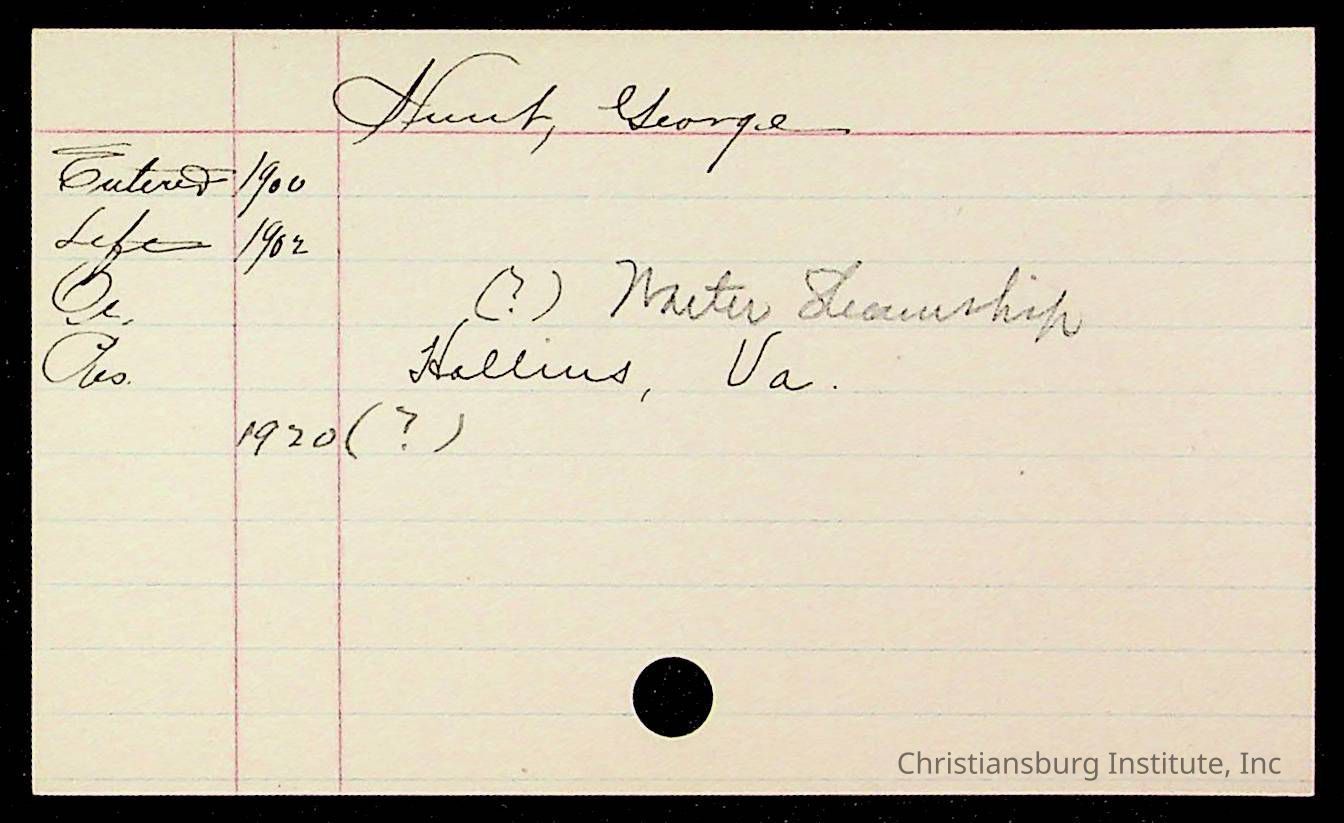 Hunt, George
Entered 1900
Left 1902
Oc. (?) Waiter Steamship
Res. Hollins, Va.
1920 (?)
Christiansburg Institute, Inc